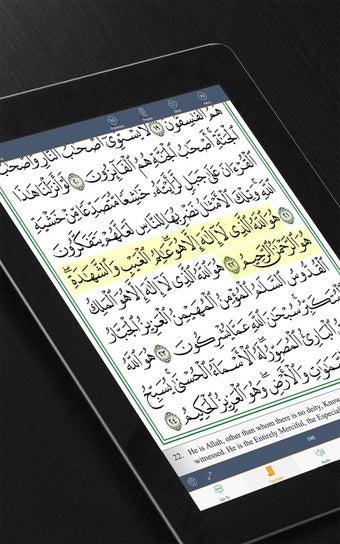 هُمُ ٱلْفَٰسِقُونَ ١٩ لَا يَسْتَوِىٓ أَصْحَٰبُ ٱلنَّارِ وَأَصْحَٰبُ
ٱلْجَنَّةِ أَصْحَٰبُ ٱلْجَنَّةِ هُمُ ٱلْفَآئِزُونَ ٢٠ لَوْ أَنزَلْنَا هَٰذَا
ٱلْقُرْءَانَ عَلَىٰ جَبَلٍ لَّرَأَيْتَهُۥ خَٰشِعًا مُّتَصَدِّعًا مِّنْ خَشْيَةِ
ٱللَّهِ وَتِلْكَ ٱلْأَمْثَٰلُ نَضْرِبُهَا لِلنَّاسِ لَعَلَّهُمْ يَتَفَكَّرُونَ
٢١ هُوَ ٱللَّهُ ٱلَّذِى لَآ إِلَٰهَ إِلَّا هُوَ عَٰلِمُ ٱلْغَيْبِ وَٱلشَّهَٰدَةِ
هُوَ ٱلرَّحْمَٰنُ ٱلرَّحِيمُ ٢٢ هُوَ ٱللَّهُ ٱلَّذِى لَآ إِلَٰهَ إِلَّا هُوَ ٱلْمَلِكُ
ٱلْقُدُّوسُ ٱلسَّلَٰمُ ٱلْمُؤْمِنُ ٱلْمُهَيْمِنُ ٱلْعَزِيزُ ٱلْجَبَّارُ
ٱلْمُتَكَبِّرُ سُبْحَٰنَ ٱللَّهِ عَمَّا يُشْرِكُونَ ٢٣ هُوَ ٱللَّهُ
ٱلْبَارِئُ ٱلْمُصَوِّرُ لَهُ ٱلْأَسْمَآءُ ٱلْحُسْنَىٰ يُسَبِّحُ
وَٱلْأَرْضِ وَهُوَ ٱلْعَزِيزُ ٱلْحَكِيمُ ٢٤
22. He is Allah, other than whom there is no deity, Know
witnessed. He is the Entirely Merciful, the Especial
548
Go To
Audio